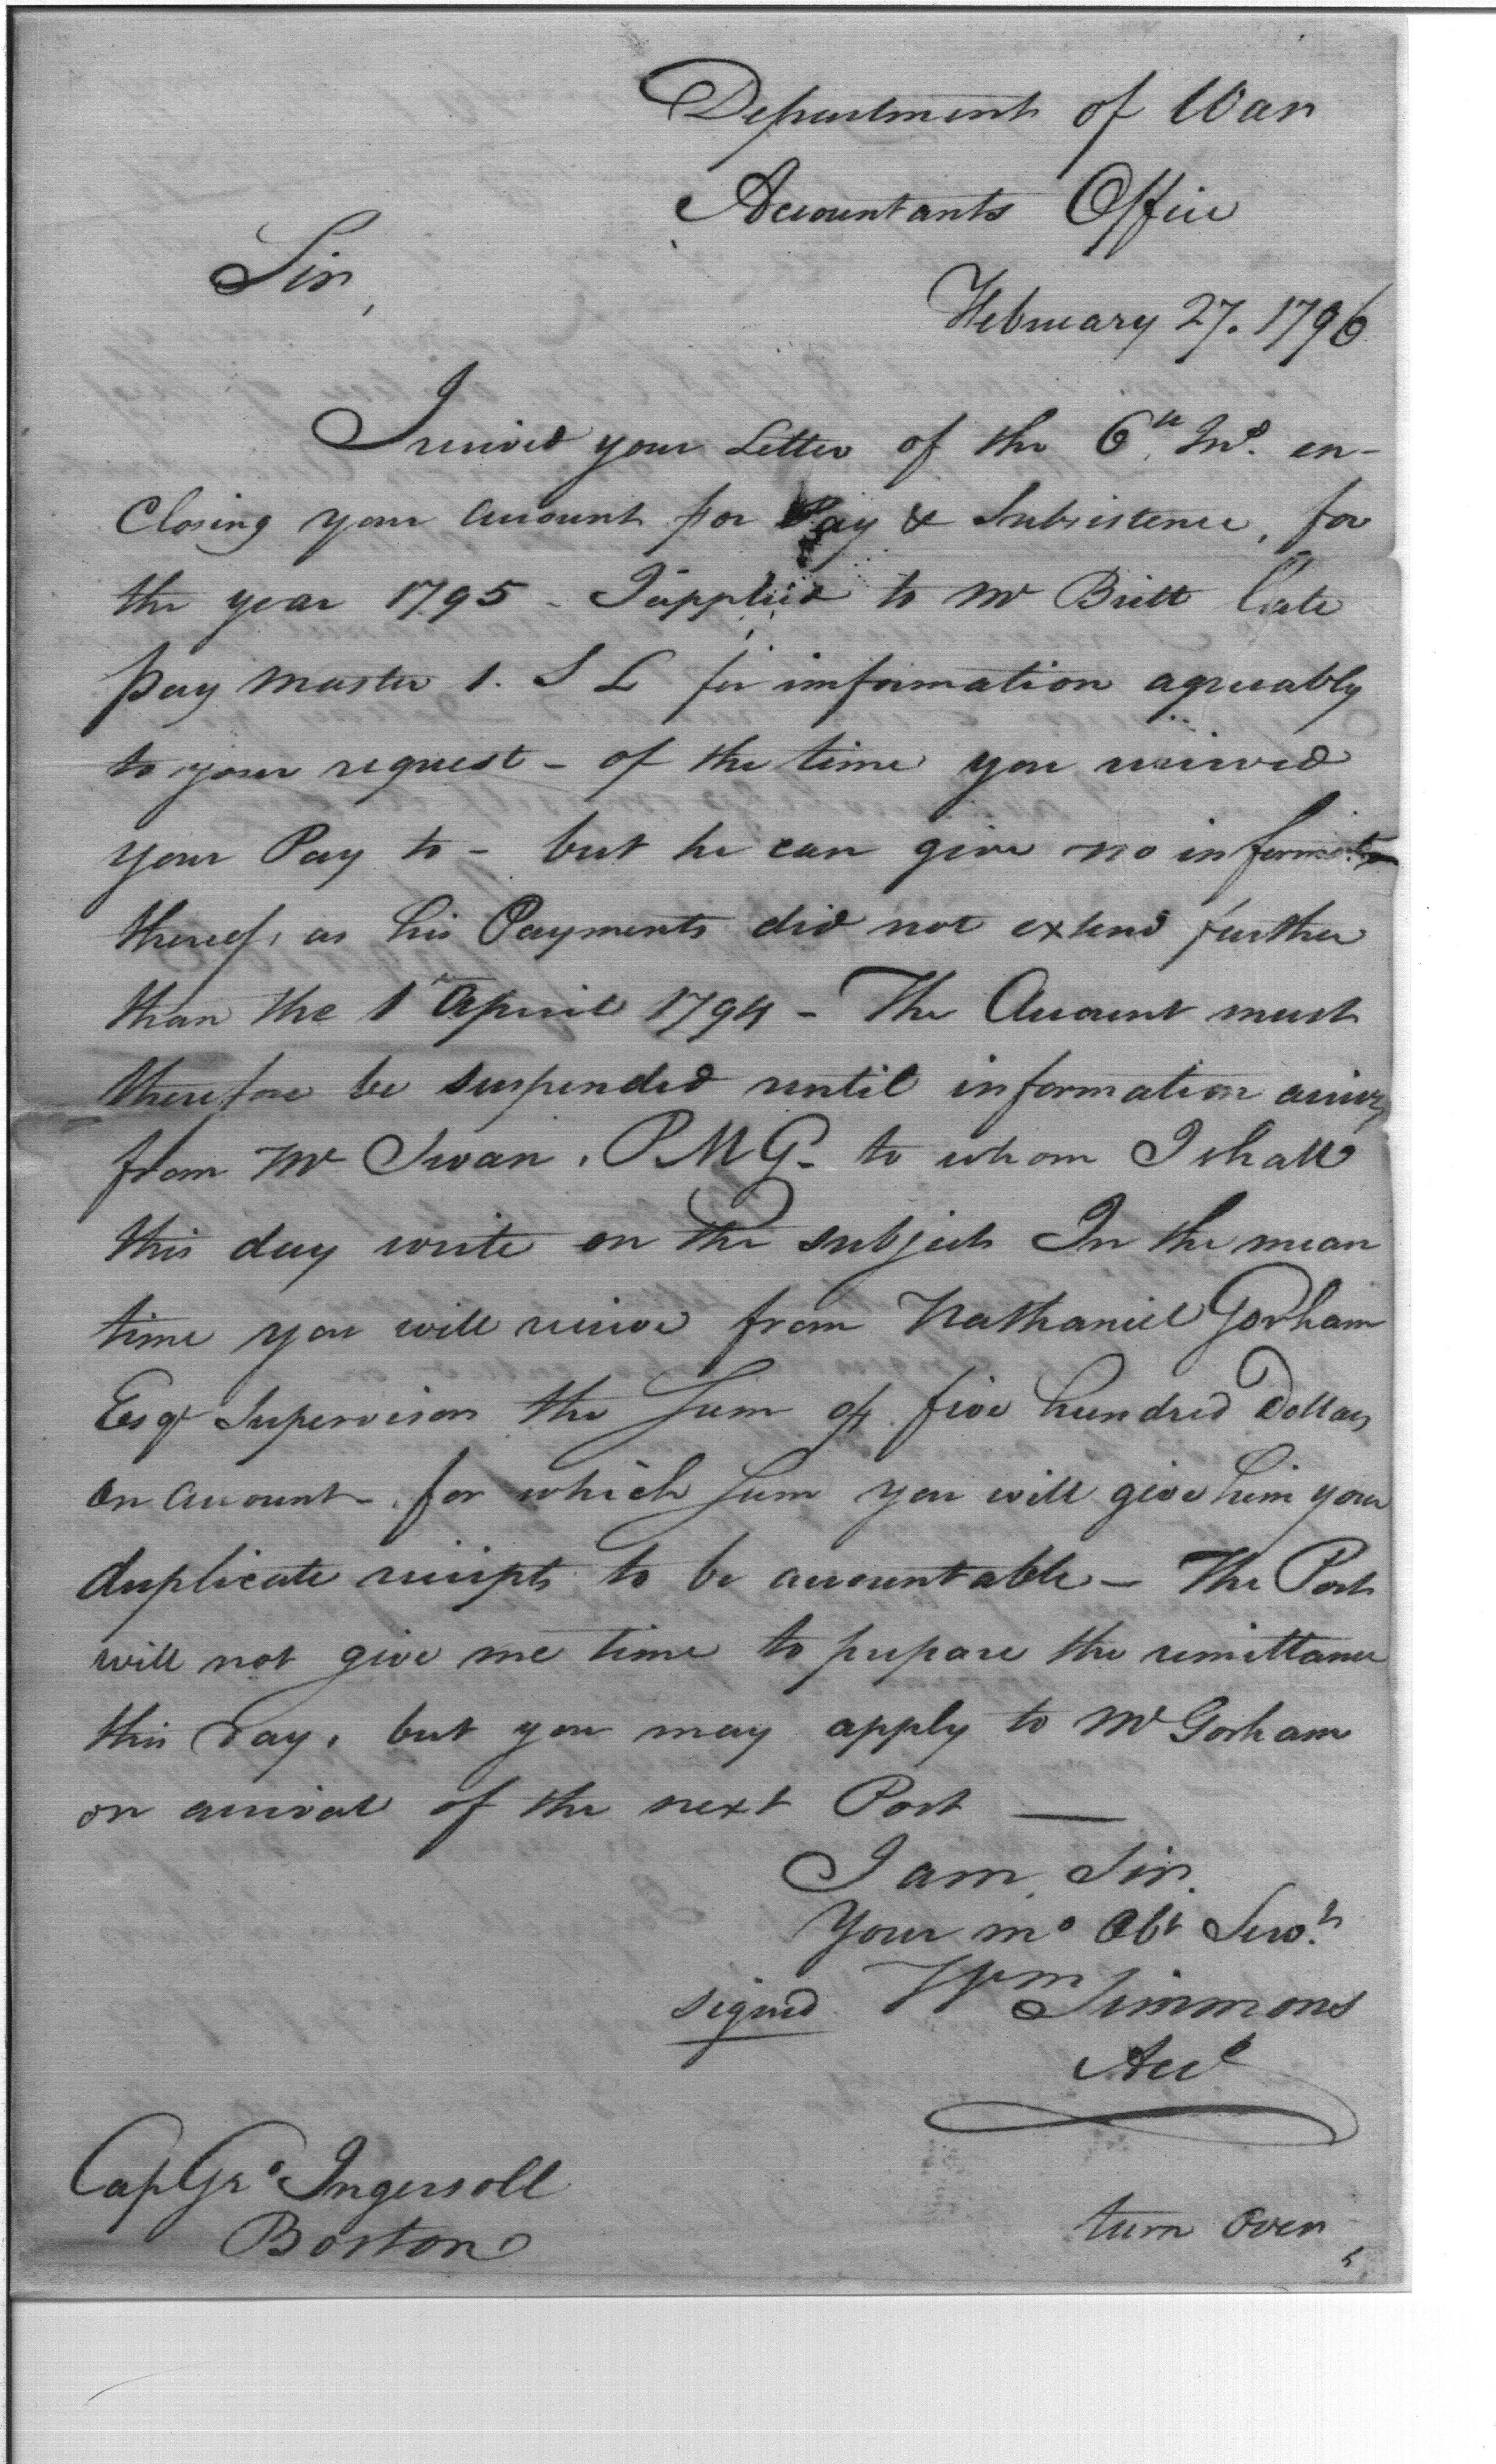 Department of War
Accountants Office
Sir,
February 27. 1796
I received your Letter of the 6th Ins. en-
closing your account for Pay & Subsistence, for
the year 1795 - I applied to Mr Britt late
Pay Master 1. S L for information agreeably
to your request - of the time you received
your Pay to - but he can give no information
thereof, as his Payments did not extend further
than the 1st April 1794 - The Account must
therefore be suspended until information arrives
from Mr Swan, PMG - to whom I shall
this day write on the subject In the mean
time you will receive from Nathaniel Gorham
Esqr Supervisor the Sum of five hundred Dollars
on account - for which Sum you will give him your
duplicate receipts to be accountable - The Post
will not give me time to prepare the remittance
this Day, but you may apply to Mr Gorham
on arrival of the next Post —
I am, Sir,
Your mo Obt Servt
signed Wm Simmons
Acct
Cap Geo Ingersoll
Boston
turn over